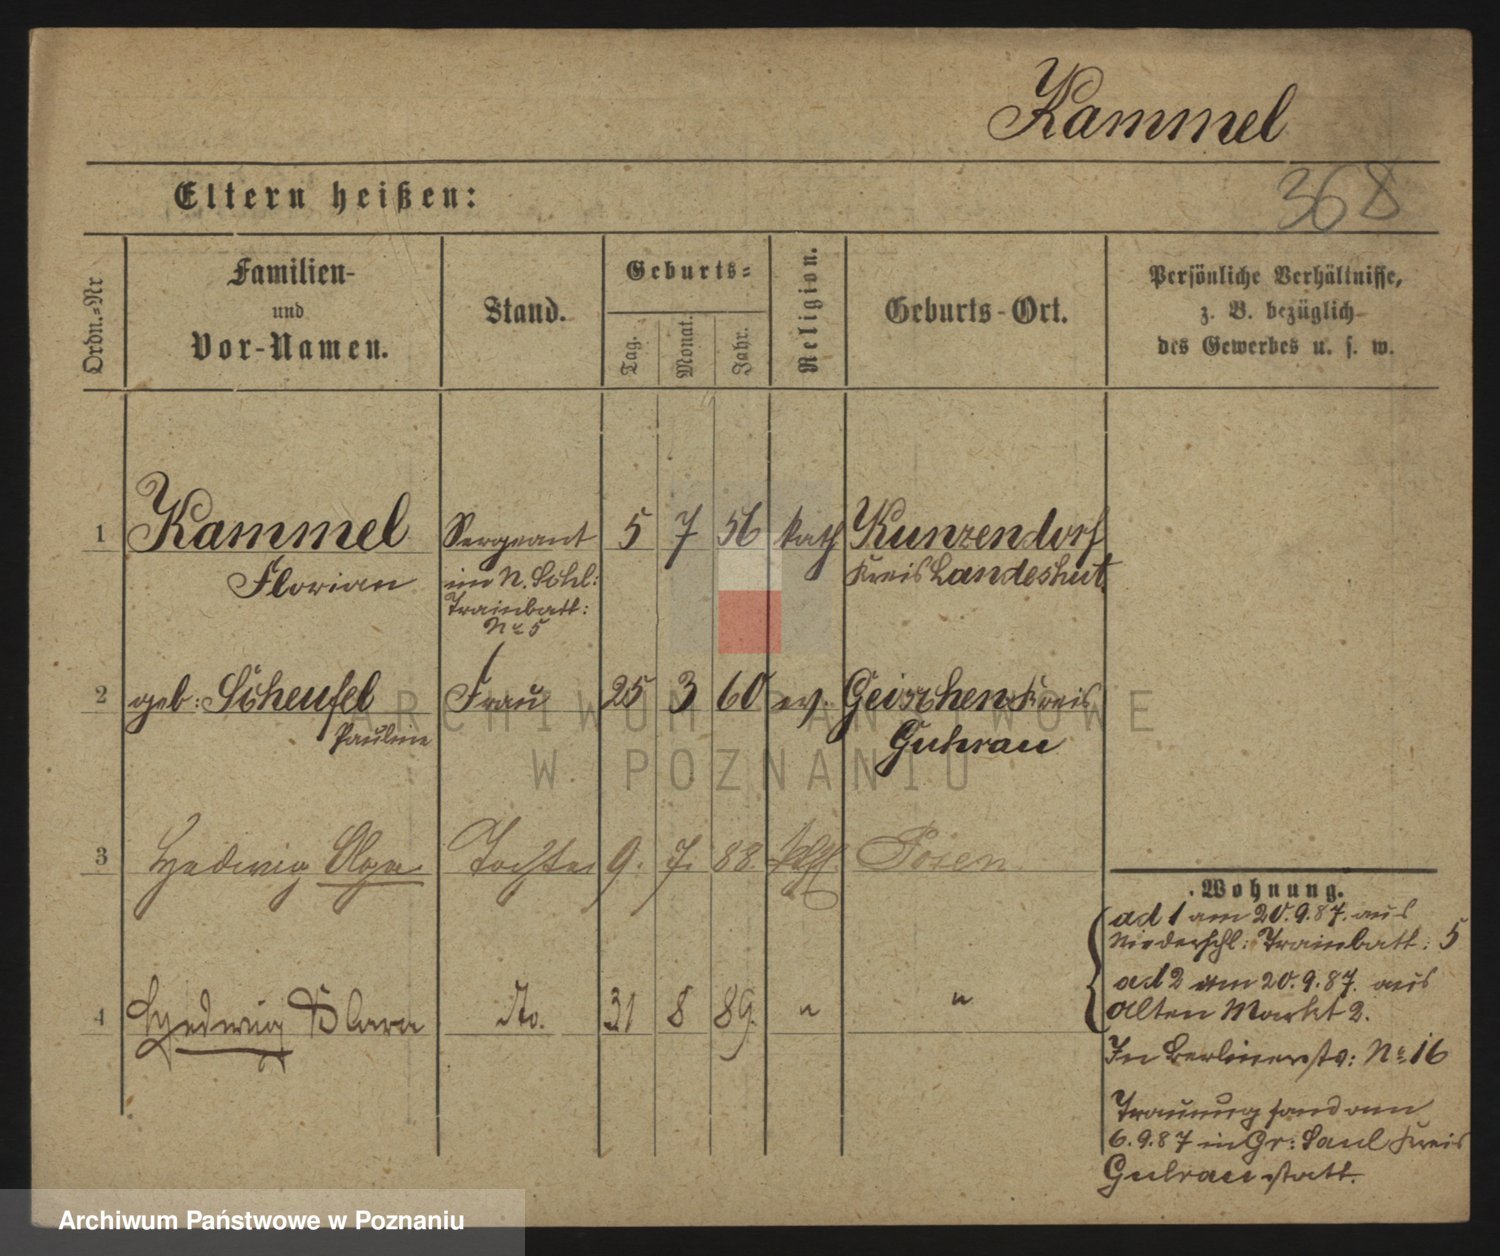 Kammel
368
Eltern heißen:
Ordn.-Nr
Familien-
und
Vor-Namen.
Stand.
Geburts-
Tag.
Monat.
Jahr.
Religion.
Geburts-Ort.
Persönliche Verhältnisse,
z. B. bezüglich
des Gewerbes u. s. w.
1 Kammel Sergeant 5 7 56 kath Kunzendorf
Florian im N. Schl: Kreis Landeshut
Trainbatt:
No 5
2 geb: Scheufel Frau 25 3 60 ev. Geischen Kreis
Pauline Guhrau
3 Hedwig Olga Tochter 9. 7. 88. kath. Posen
4 Hedwig Klara do. 31 8 89. " "
Wohnung.
ad 1 am 20.9.87. aus
Niederschl: Trainbatt: 5
ad 2 am 20.9.87. aus
Alten Markt 2.
In Berlinerstr: No 16
Trauung fand am
6.9.87 in Gr: Saul Kreis
Guhrau statt.
ARCHIWUM PAŃSTWOWE
W POZNANIU
Archiwum Państwowe w Poznaniu